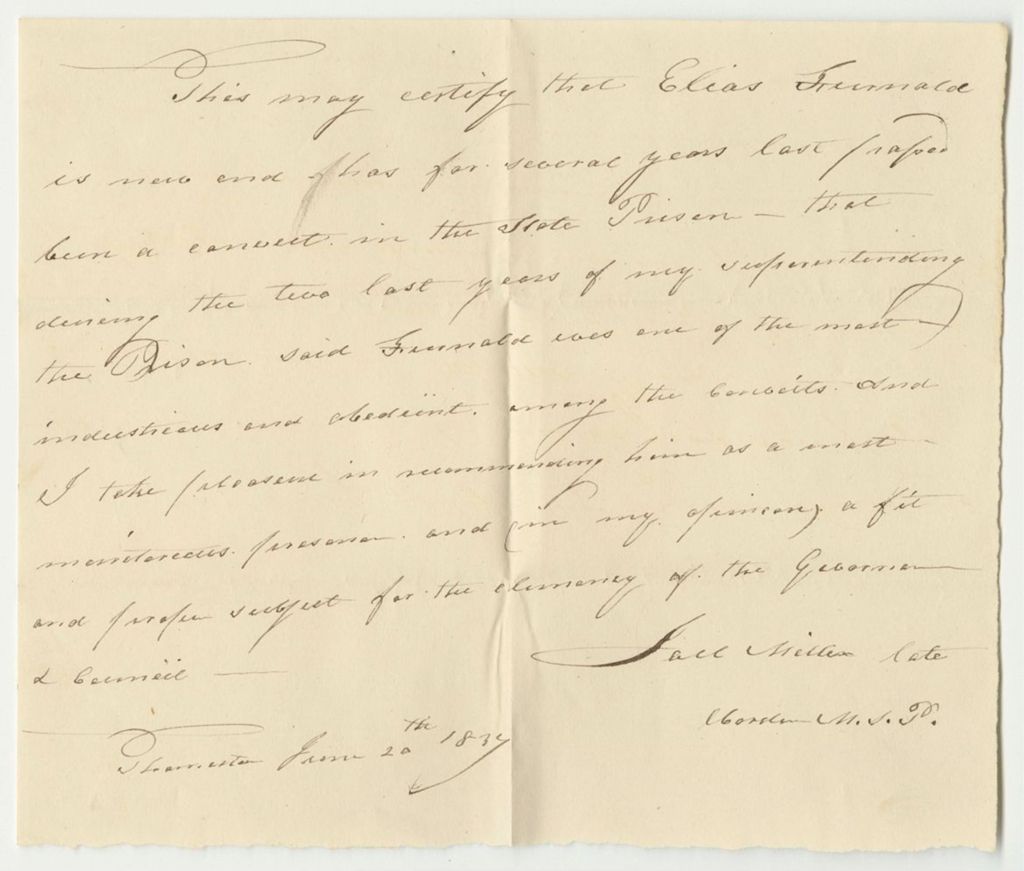 This may certify that Elias Freunald
is now and has for several years last passed
been a convect in the State Prison — that
dureing the two last years of my superentending
the Prison said Freunald was one of the most
industrious and obedient among the convects and
I take pleaseur in recommending him as a most
meritoreous prisoner and (in my opinion) a fit
and proper subject for the clemency of the Governor
& Council —
Joel Miller late
Warden M. S. P.
Thomaston June 20th 1837